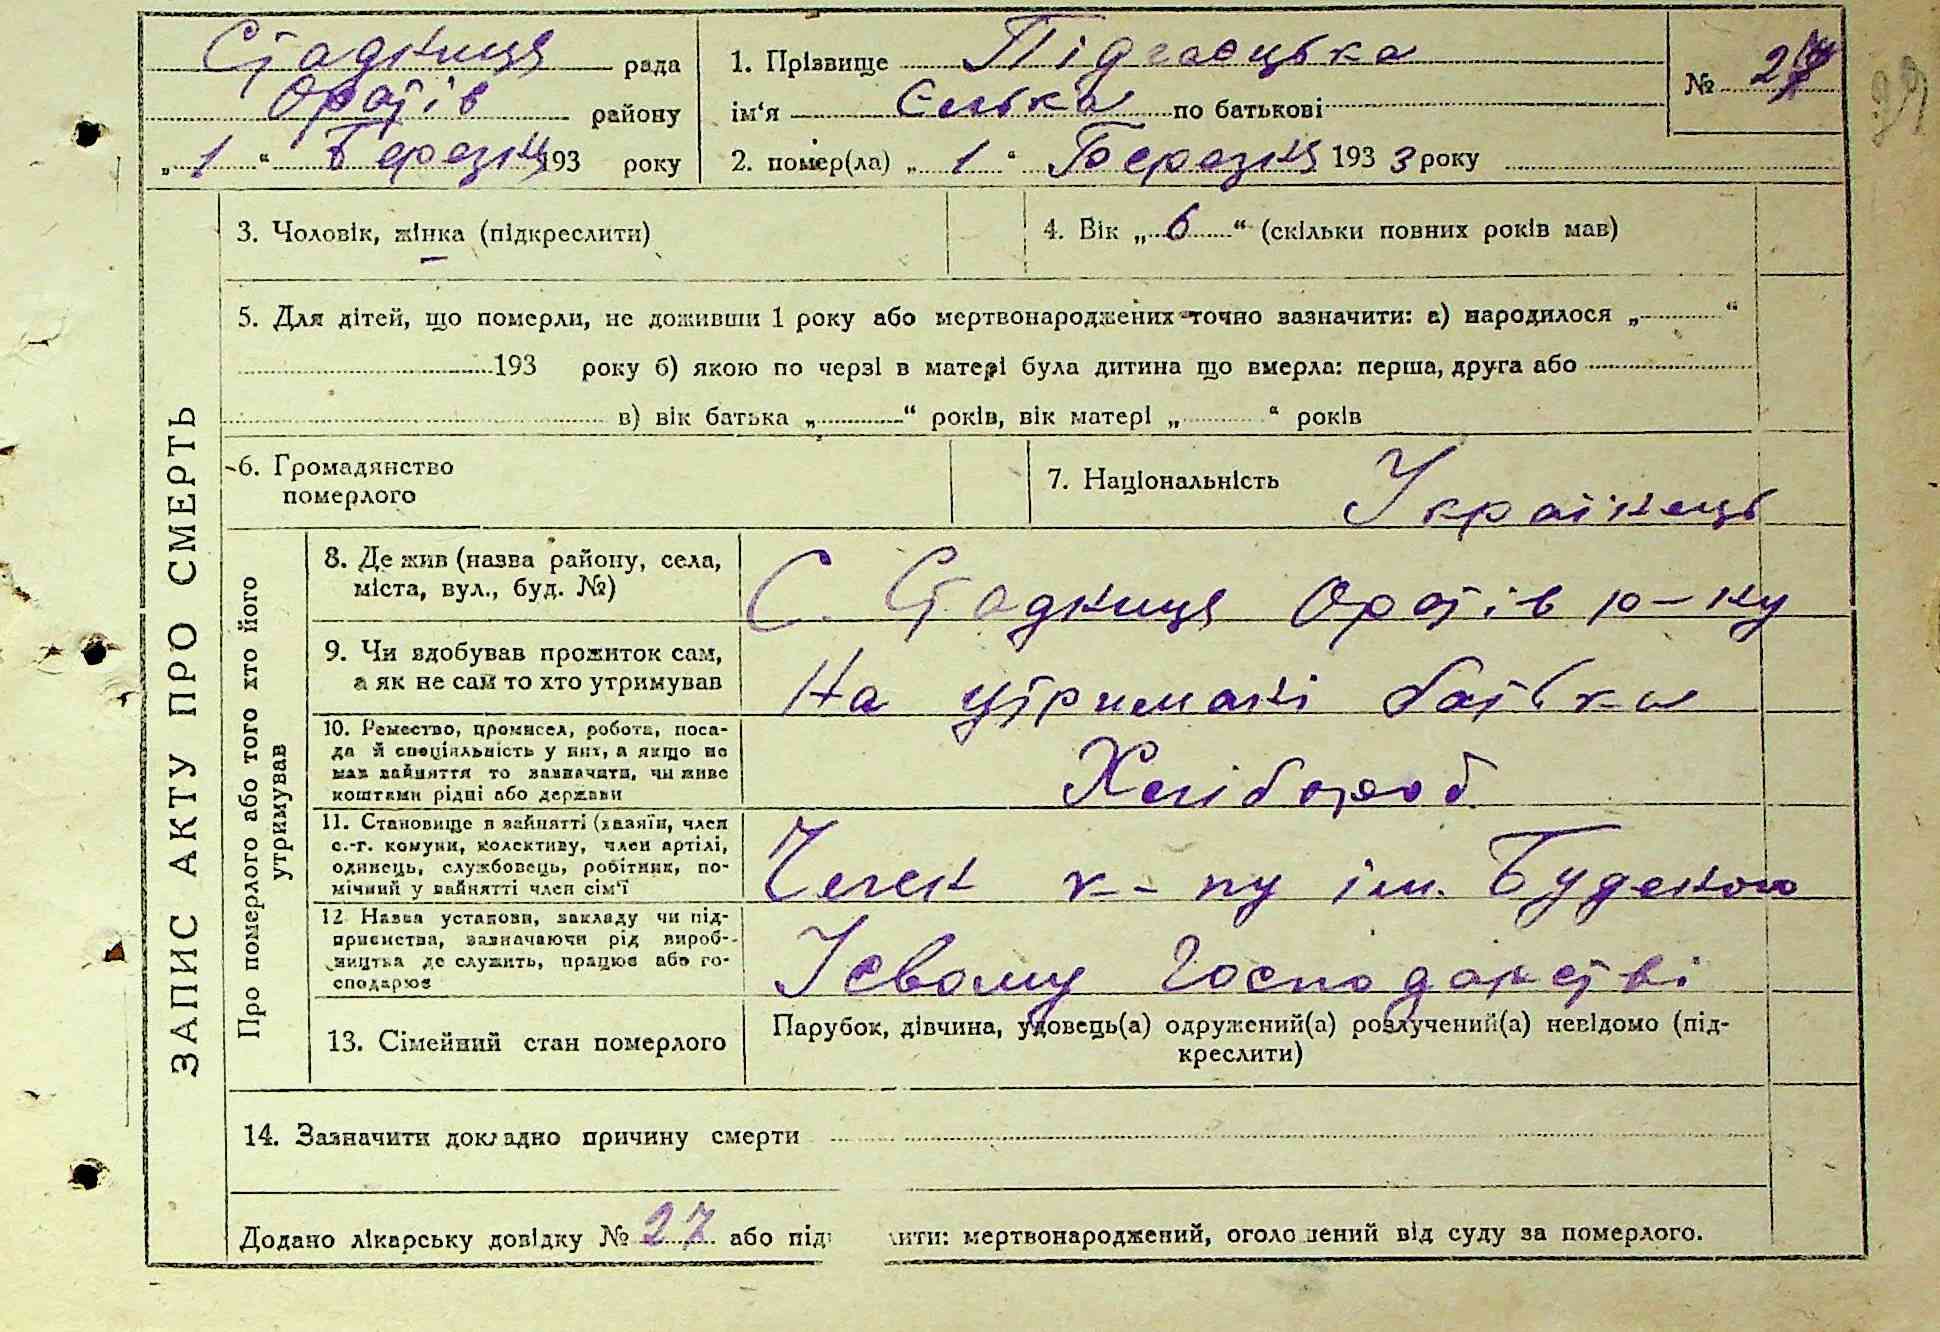 Стадниця рада
Оратів району
„ 1 “ Березня 193 року
1. Прізвище Підгаєцька
ім‘я Єлька по батькові
2. помер(ла) „ 1 “ Березня 193 3 року
№ 27
ЗАПИС АКТУ ПРО СМЕРТЬ
3. Чоловік, жінка (підкреслити)
4. Вік „ 6 “ (скільки повних років мав)
5. Для дітей, що померли, не доживши 1 року або мертвонароджених точно зазначити: а) народилося „ “
193 року б) якою по черзі в матері була дитина що вмерла: перша, друга або
в) вік батька „ “ років, вік матері „ “ років
6. Громадянство
померлого
7. Національність Українець
Про померлого або того хто його
утримував
8. Де жив (назва району, села,
міста, вул., буд. №)
С. Стадниця Оратів р-ну
9. Чи здобував прожиток сам,
а як не сам то хто утримував
На утримані батька
10. Ремество, промисел, робота, поса-
да й спеціяльність у них, а якщо не
мав зайняття то зазначити, чи живе
коштами рідні або держави
Хлібороб
11. Становище в зайнятті (хазяїн, член
с.-г. комуни, колективу, член артілі,
одинець, службовець, робітник, по-
мічний у зайнятті член сім‘ї
Член к-пу ім. Буденого
12. Назва установи, закладу чи під-
приємства, зазначаючи рід вироб-
ництва де служить, працює або го-
сподарює
У свому господарстві
13. Сімейний стан померлого
Парубок, дівчина, удовець(а) одружений(а) розлучений(а) невідомо (під-
креслити)
14. Зазначити докладно причину смерти
Додано лікарську довідку № 27 або під ити: мертвонароджений, оголо ений від суду за померлого.